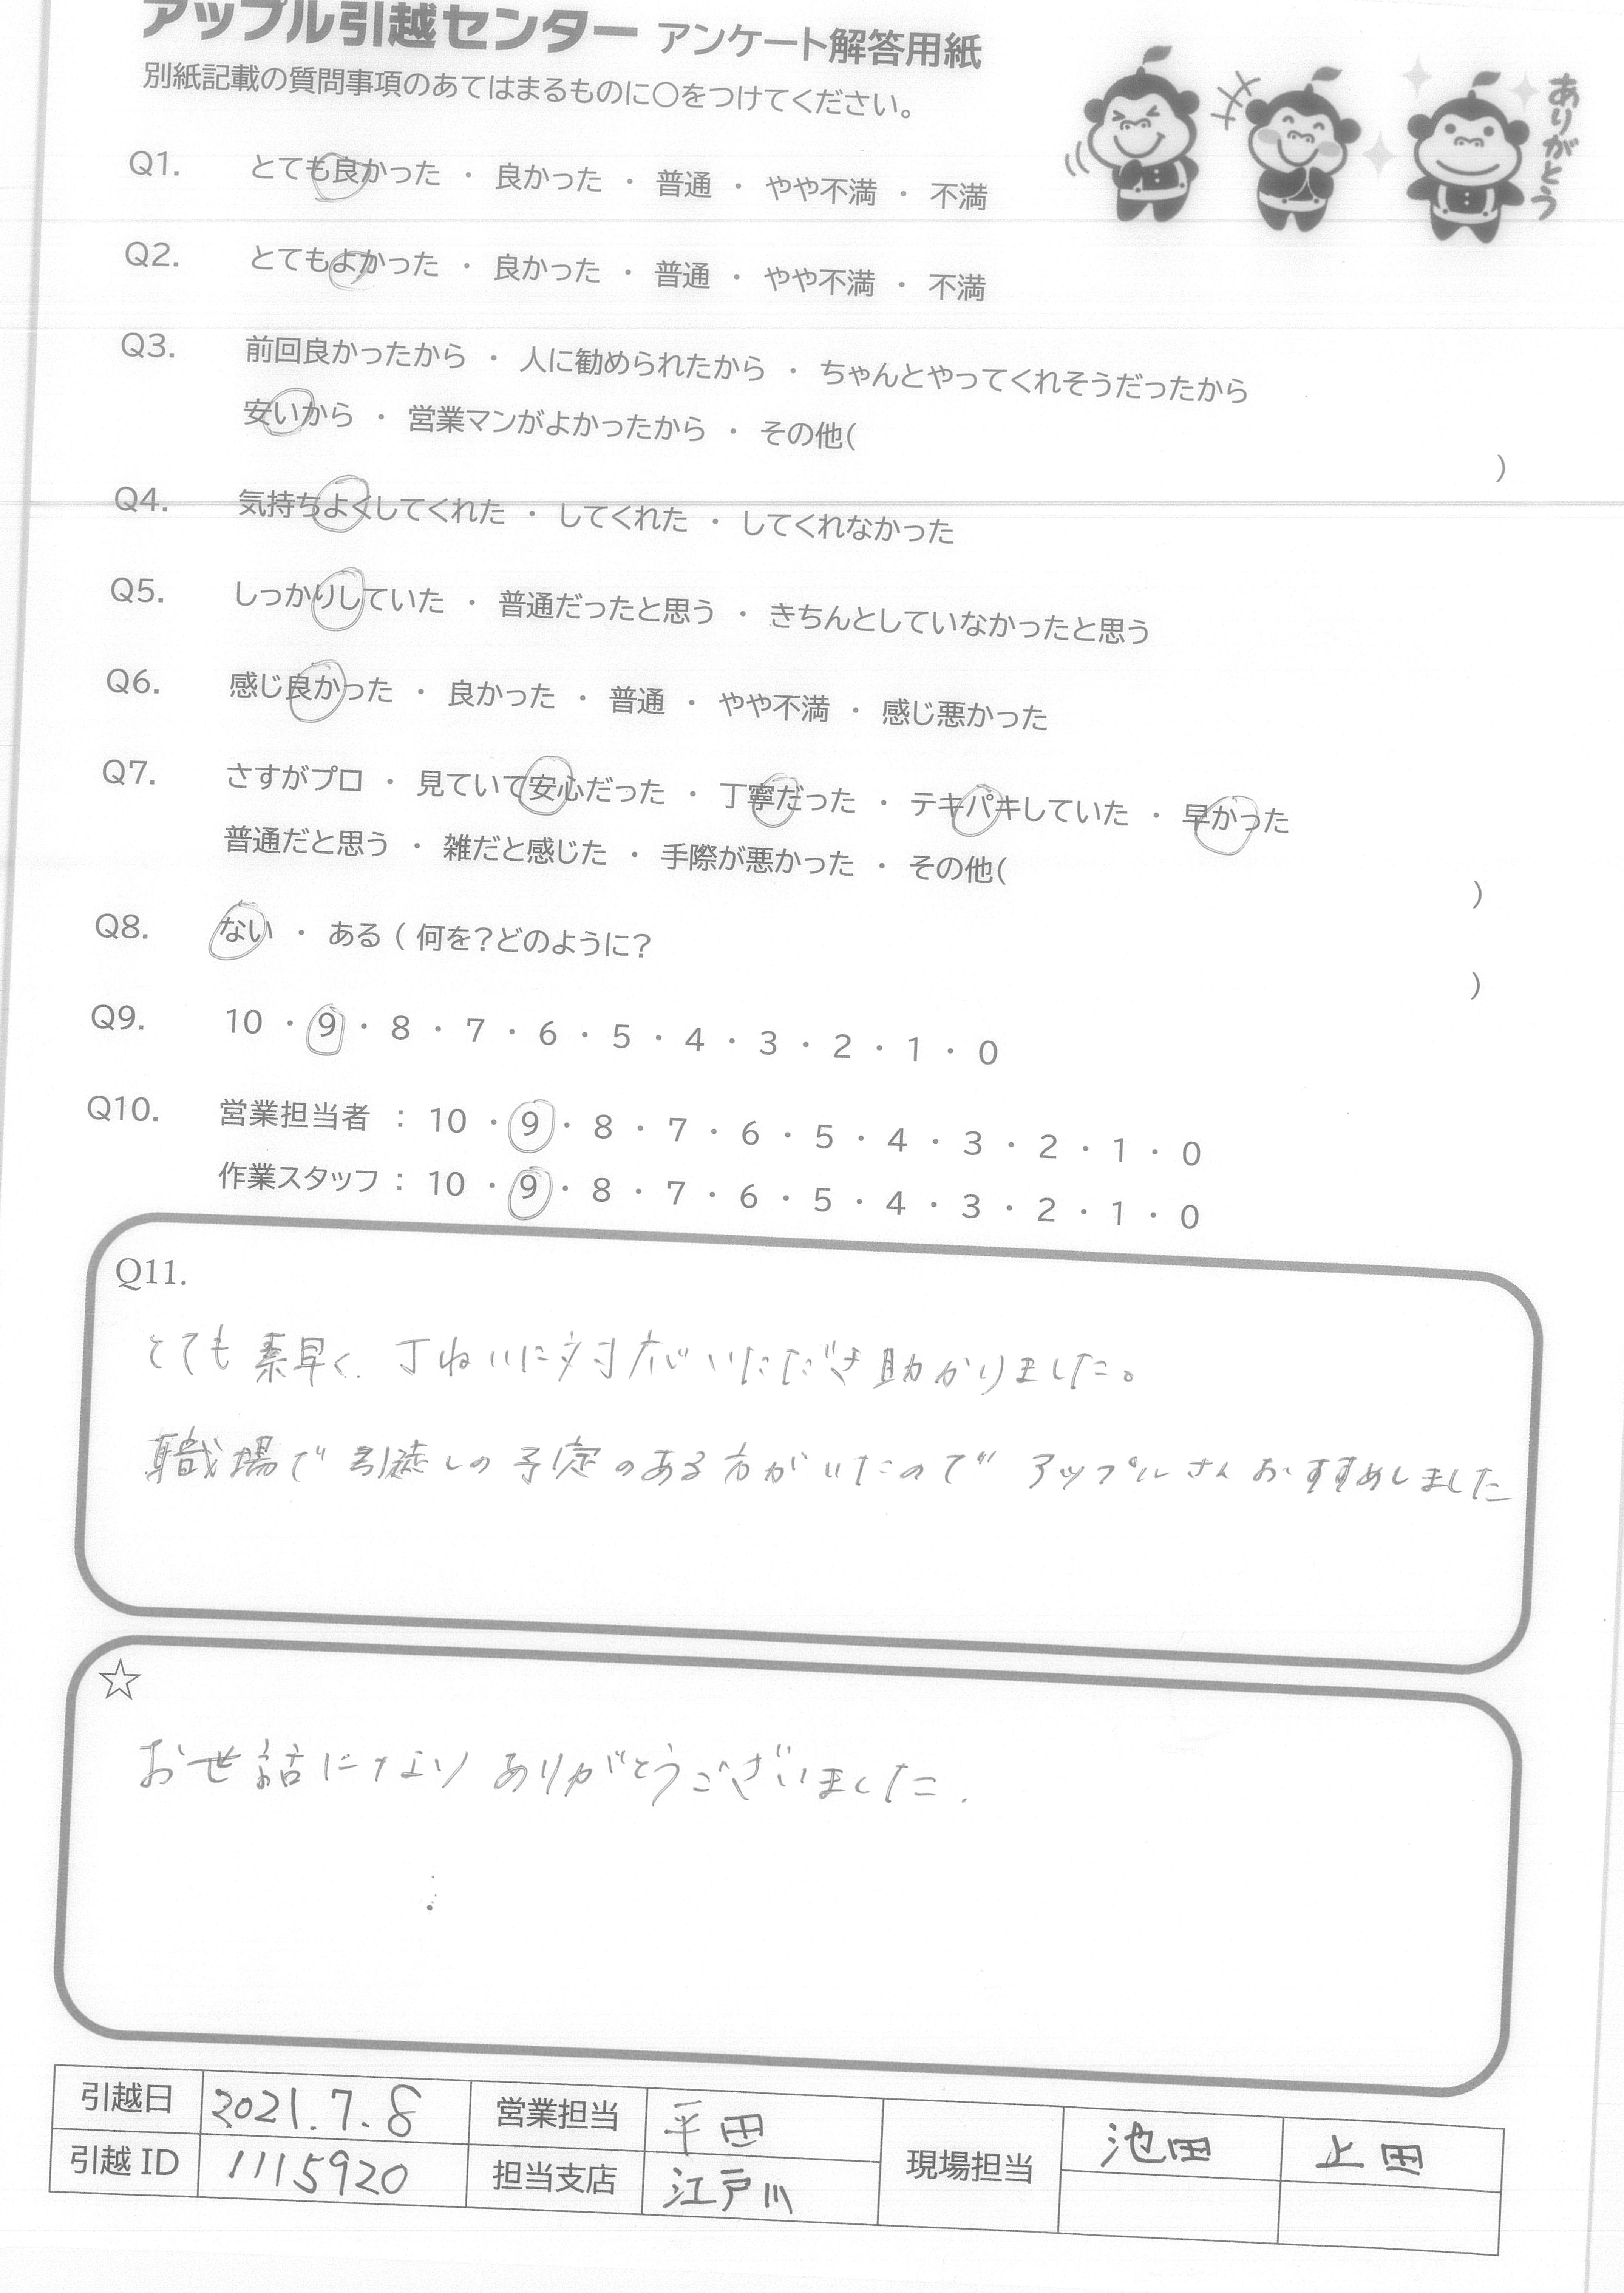 アップル引越センター アンケート解答用紙
別紙記載の質問事項のあてはまるものに○をつけてください。
ありがとう
Q1. とても良かった ・ 良かった ・ 普通 ・ やや不満 ・ 不満
Q2. とてもよかった ・ 良かった ・ 普通 ・ やや不満 ・ 不満
Q3. 前回良かったから ・ 人に勧められたから ・ ちゃんとやってくれそうだったから
安いから ・ 営業マンがよかったから ・ その他( )
Q4. 気持ちよくしてくれた ・ してくれた ・ してくれなかった
Q5. しっかりしていた ・ 普通だったと思う ・ きちんとしていなかったと思う
Q6. 感じ良かった ・ 良かった ・ 普通 ・ やや不満 ・ 感じ悪かった
Q7. さすがプロ ・ 見ていて安心だった ・ 丁寧だった ・ テキパキしていた ・ 早かった
普通だと思う ・ 雑だと感じた ・ 手際が悪かった ・ その他( )
Q8. ない ・ ある ( 何を?どのように? )
Q9. 10 ・ 9 ・ 8 ・ 7 ・ 6 ・ 5 ・ 4 ・ 3 ・ 2 ・ 1 ・ 0
Q10. 営業担当者 : 10 ・ 9 ・ 8 ・ 7 ・ 6 ・ 5 ・ 4 ・ 3 ・ 2 ・ 1 ・ 0
作業スタッフ : 10 ・ 9 ・ 8 ・ 7 ・ 6 ・ 5 ・ 4 ・ 3 ・ 2 ・ 1 ・ 0
Q11.
とても素早く、丁ねいに対応いただき助かりました。
職場で引越しの予定のある方がいたので アップルさんおすすめしました
☆
お世話になり ありがとうございました.
引越日 2021.7.8 営業担当 平田 現場担当 池田 上田
引越ID 1115920 担当支店 江戸川